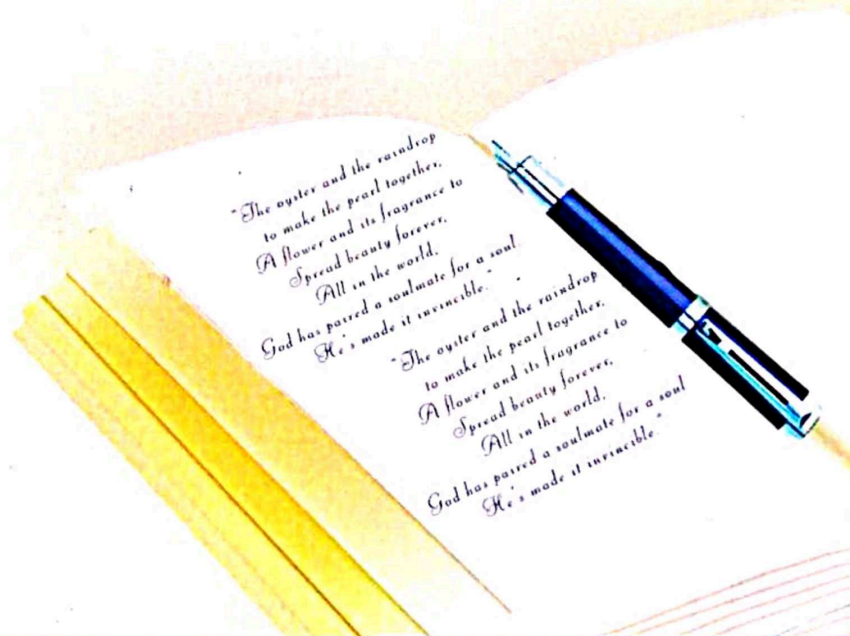 "The oyster and the raindrop
to make the pearl together,
A flower and its fragrance to
Spread beauty forever,
All in the world,
God has paired a soulmate for a soul.
He's made it invincible."
"The oyster and the raindrop
to make the pearl together,
A flower and its fragrance to
Spread beauty forever,
All in the world,
God has paired a soulmate for a soul
He's made it invincible."